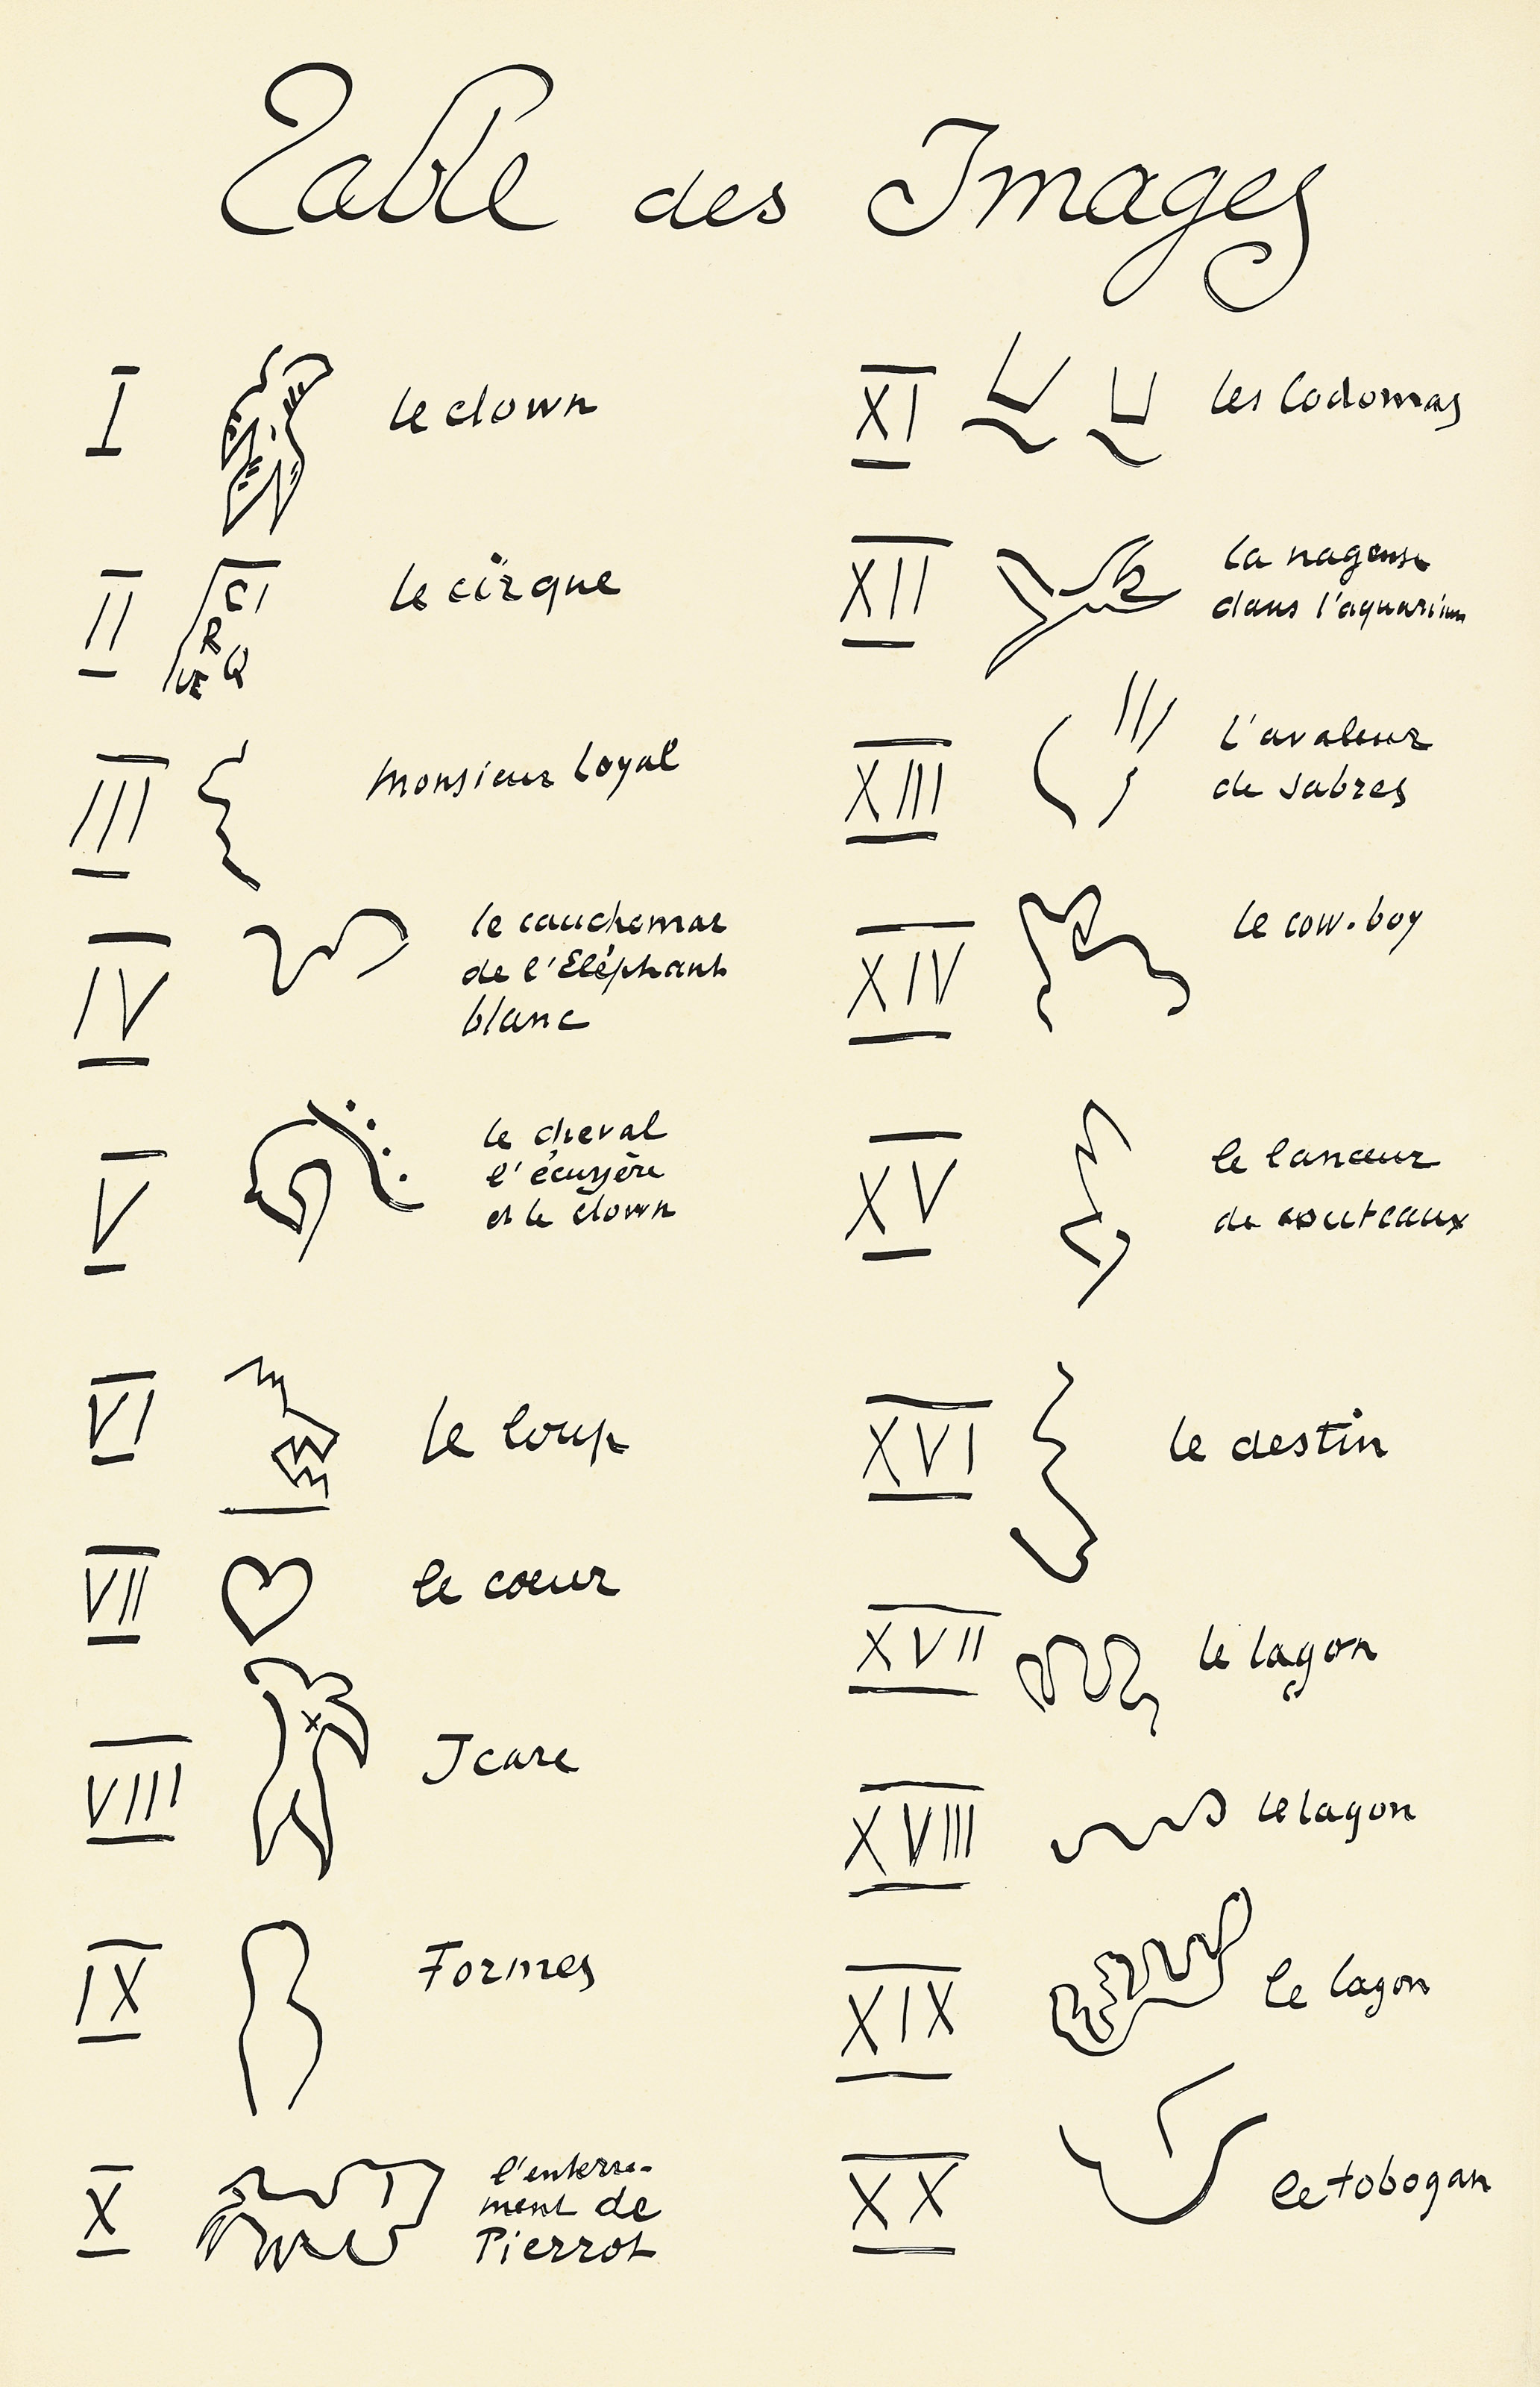 Table des Images
I le clown
II CI
R
Q
UE
le cirque
III Monsieur Loyal
IV le cauchemar
de l'Eléphant
blanc
V le cheval
l'écuyère
et le clown
VI le loup
VII le coeur
VIII Icare
IX Formes
X l'enterre-
ment de
Pierrot
XI les Codomas
XII la nageuse
dans l'aquarium
XIII l'avaleur
de sabres
XIV le cow-boy
XV le lanceur
de couteaux
XVI le destin
XVII le lagon
XVIII le lagon
XIX le lagon
XX le tobogan